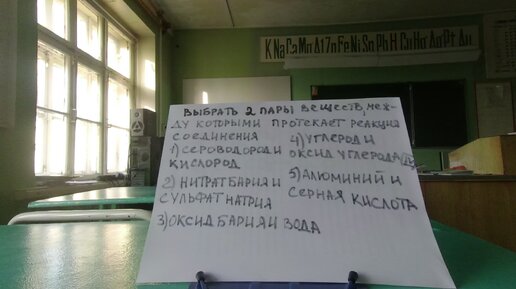 K Na Ca Mg Al Zn Fe Ni Sn Pb H Cu Hg Ag Pt Au
ВЫБРАТЬ 2 ПАРЫ ВЕЩЕСТВ, МЕЖ-
ДУ КОТОРЫМИ ПРОТЕКАЕТ РЕАКЦИЯ
СОЕДИНЕНИЯ
1) СЕРОВОДОРОД И
КИСЛОРОД
2) НИТРАТ БАРИЯ И
СУЛЬФАТ НАТРИЯ
3) ОКСИД БАРИЯ И ВОДА
4) УГЛЕРОД И
ОКСИД УГЛЕРОДА
5) АЛЮМИНИЙ И
СЕРНАЯ КИСЛОТА